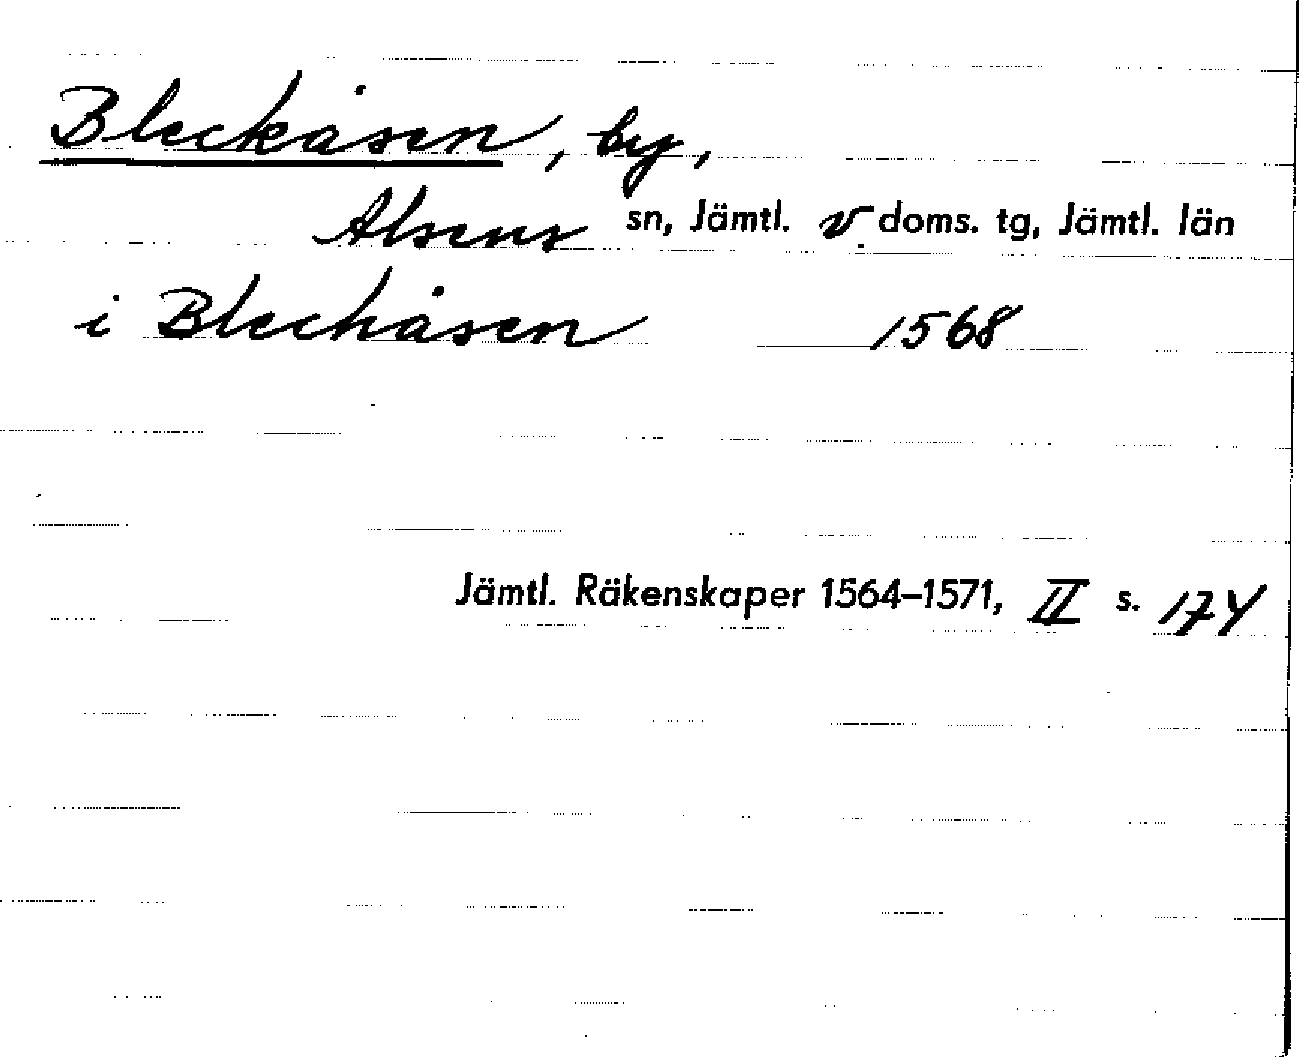 Bleckåsen, by,
Alsens sn, Jämtl. v doms. tg, Jämtl. län
i Bleckåsen 1568
Jämtl. Räkenskaper 1564–1571, II s. 174